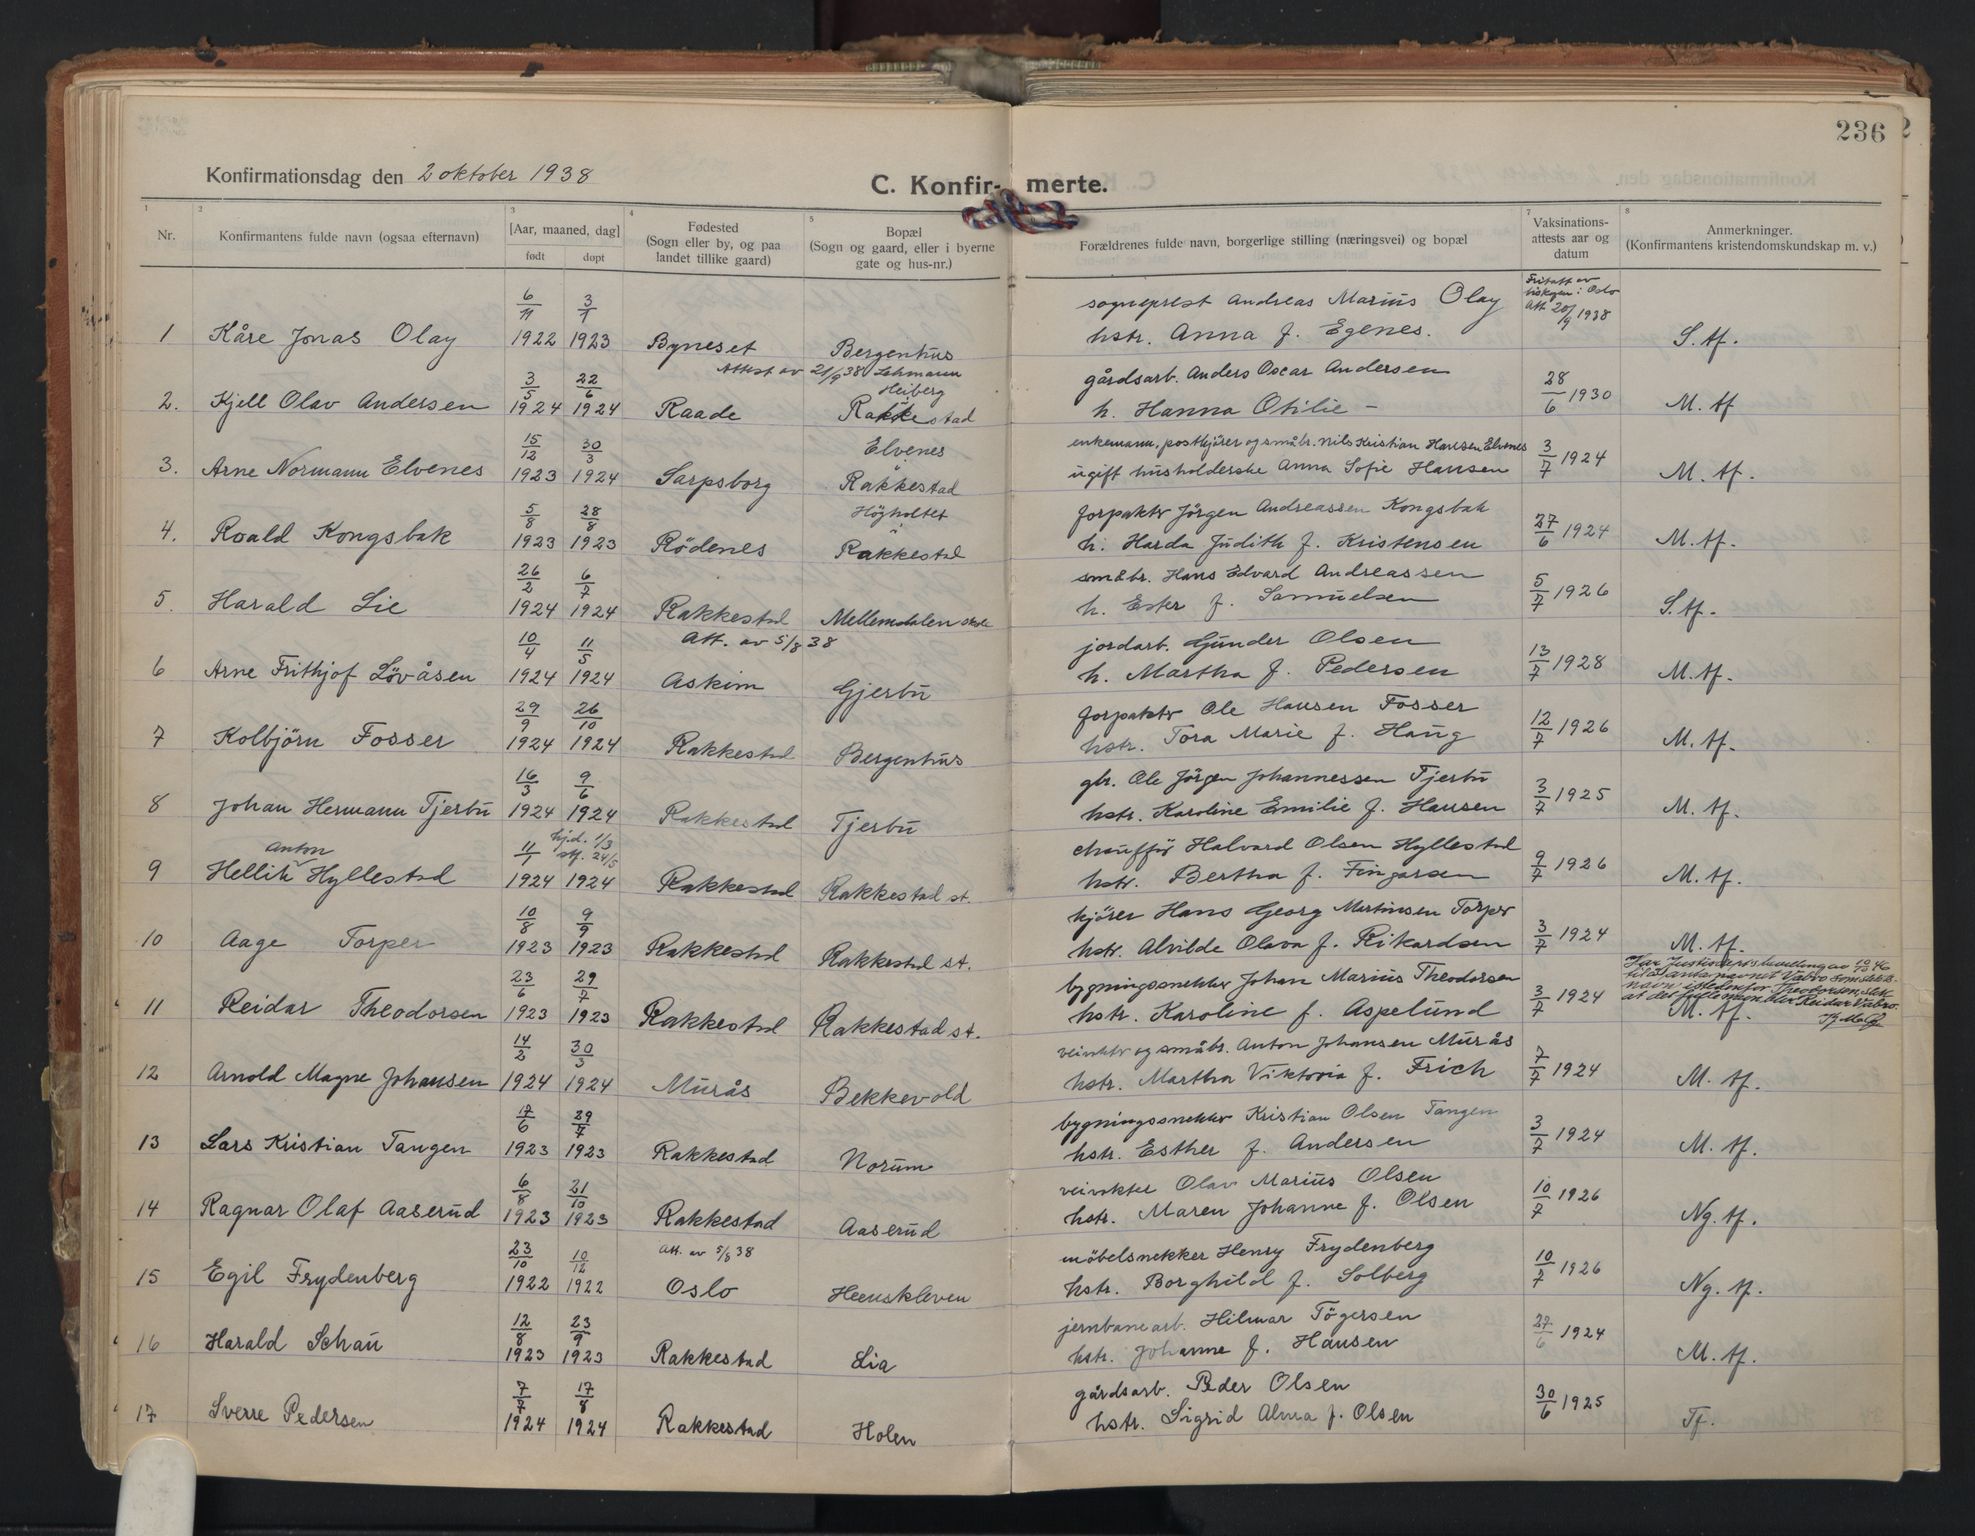 236
Konfirmationsdag den 2 oktober 1938
C. Konfirmerte.
1 2 3 4 5 6 7 8
Nr. Konfirmantens fulde navn (ogsaa efternavn) [Aar, maaned, dag] født døpt Fødested (Sogn eller by, og paa landet tillike gaard) Bopæl (Sogn og gaard, eller i byerne gate og hus-nr.) Forældrenes fulde navn, borgerlige stilling (næringsvei) og bopæl Vaksinations-attests aar og datum Anmerkninger. (Konfirmantens kristendomskundskap m. v.)
6/11 3/1 sogneprest Andreas Marius Olay Fritatt av biskopen i Oslo Att. 20/9 1938
1 Kåre Jonas Olay 1922 1923 Byneset Bergenhus hstr. Anna f. Egenes. S. tf.
Attest av 21/9 38 Lehmann
3/5 22/6 Heiberg gårdsarb. Anders Oscar Andersen 28/6 1930
2. Kjell Olav Andersen 1924 1924 Raade Rakkestad h. Hanna Otilie - M. tf
15/12 30/3 Elvenes enkemann, postkjører og småbr. Nils Kristian Hansen Elvenes 3/7 1924
3. Arne Normann Elvenes 1923 1924 Sarpsborg Rakkestad ugift husholderske Anna Sofie Hansen M. tf.
5/8 28/8 Högholtet forpaktr Jörgen Andreassen Kongsbak 27/6 1924
4. Roald Kongsbak 1923 1923 Rödenes Rakkestad h. Harda Judith f. Kristensen M. tf.
26/2 6/7 småbr. Hans Edvard Andreassen 5/7 1926
5. Harald Lie 1924 1924 Rakkestad Mellemdalen skole h. Ester f. Samuelsen S. tf.
Att. av 5/8 38
10/4 11/5 jordarb. Gunder Olsen 13/7 1928
6 Arne Frithjof Lövåsen 1924 1924 Askim Gjerbu h. Martha f. Pedersen M. tf.
29/9 26/10 forpaktr Ole Hansen Fosser 12/7 1926
7 Kolbjörn Fosser 1924 1924 Rakkestad Bergenhus hstr. Tora Marie f. Haug M. tf.
16/3 9/6 gbr. Ole Jörgen Johannessen Tjerbu 3/7 1925
8 Johan Hermann Tjerbu 1924 1924 Rakkestad Tjerbu hstr. Karoline Emilie f. Hansen M. tf.
Anton 11/1 hjd. 1/3 stf. 24/5 chauffør Halvard Olsen Hyllestad 9/7 1926
9 Hellik Hyllestad 1924 1924 Rakkestad Rakkestad st. hstr. Bertha f. Fingarsen M. tf.
10/8 9/9 kjörer Hans Georg Martinsen Torper 3/7 1924
10 Aage Torper 1923 1923 Rakkestad Rakkestad st. hstr. Alvilde Olava f. Rikardsen M. tf.
23/6 29/7 bygningssnekker Johan Marius Theodorsen 3/7 1924 Har Justisdep's bevilling av 19/10 46 til å anta navnet Vabro som slektsnavn istedenfor Theodorsen, slik at det fulle navn blir Reidar Vabro.
11 Reidar Theodorsen 1923 1923 Rakkestad Rakkestad st. hstr. Karoline f. Aspelund M. tf.
14/2 30/3 veivoktr og småbr. Anton Johansen Murås 7/7 1924
12 Arnold Magne Johansen 1924 1924 Murås Bekkevold hstr. Martha Viktoria f. Frich M. tf.
17/6 29/7 bygningssnekkr Kristian Olsen Tangen 3/7 1924
13 Lars Kristian Tangen 1923 1923 Rakkestad Norum hstr. Esther f. Andersen M. tf.
6/8 21/10 veivokter Olav Marius Olsen 10/7 1926
14 Ragnar Olaf Aaserud 1923 1923 Rakkestad Aaserud hstr. Maren Johanne f. Olsen Ng. tf.
23/10 10/12 Att. av 5/8 38 möbelsnekker Henry Frydenberg 10/7 1926
15 Egil Frydenberg 1922 1922 Oslo Heenskleven hstr. Borghild f. Solberg Ng. tf.
12/8 23/9 jernbanearb. Hilmar Tögersen 27/6 1924
16 Harald Schau 1923 1923 Rakkestad Lia hstr. Johanne f. Hansen M. tf.
7/7 17/8 gårdsarb. Peder Olsen 30/6 1925
17 Sverre Pedersen 1924 1924 Rakkestad Holen hstr. Sigrid Alma f. Olsen Tf.